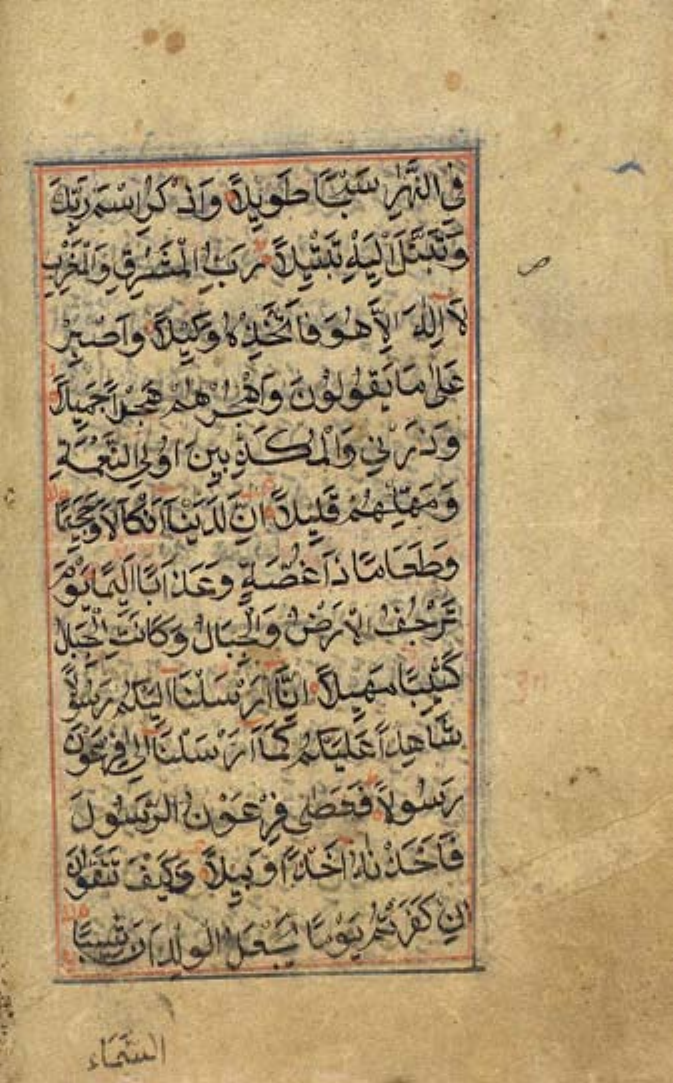 فِي النَّهَارِ سَبْحًا طَوِيلًا وَاذْكُرِ اسْمَ رَبِّكَ
وَتَبَتَّلْ إِلَيْهِ تَبْتِيلًا رَبُّ الْمَشْرِقِ وَالْمَغْرِبِ
لَا إِلٰهَ إِلَّا هُوَ فَاتَّخِذْهُ وَكِيلًا وَاصْبِرْ
عَلَىٰ مَا يَقُولُونَ وَاهْجُرْهُمْ هَجْرًا جَمِيلًا
وَذَرْنِي وَالْمُكَذِّبِينَ أُولِي النَّعْمَةِ
وَمَهِّلْهُمْ قَلِيلًا إِنَّ لَدَيْنَا أَنْكَالًا وَجَحِيمًا
وَطَعَامًا ذَا غُصَّةٍ وَعَذَابًا أَلِيمًا يَوْمَ
تَرْجُفُ الْأَرْضُ وَالْجِبَالُ وَكَانَتِ الْجِبَالُ
كَثِيبًا مَهِيلًا إِنَّا أَرْسَلْنَا إِلَيْكُمْ رَسُولًا
شَاهِدًا عَلَيْكُمْ كَمَا أَرْسَلْنَا إِلَىٰ فِرْعَوْنَ
رَسُولًا فَعَصَىٰ فِرْعَوْنُ الرَّسُولَ
فَأَخَذْنَاهُ أَخْذًا وَبِيلًا وَكَيْفَ تَتَّقُونَ
إِنْ كَفَرْتُمْ يَوْمًا يَجْعَلُ الْوِلْدَانَ شِيبًا
السَّمَاءُ